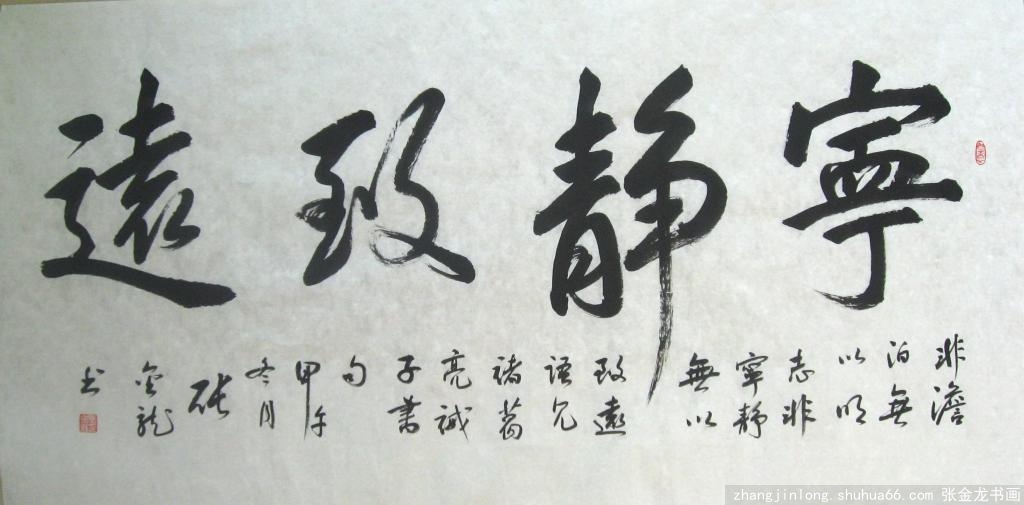 寧靜致遠
非澹
泊無
以明
志非
寧靜
無以
致遠
語見
諸葛
亮誡
子書
句
甲午
冬月
張
金龍
书
zhangjinlong.shuhua66.com 张金龙书画